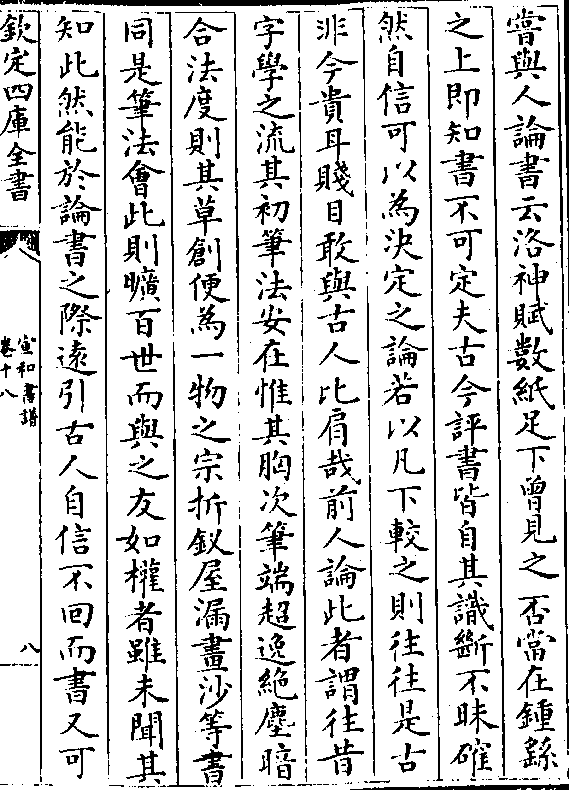 嘗與人論書云洛神賦數紙足下曽見之否當在鍾繇
之上即知書不可定夫古今評書皆自其識斷不昧確
然自信可以為決定之論若以凡下較之則往往是古
非今貴耳賤目敢與古人比肩哉前人論此者謂往昔
字學之流其初筆法安在惟其胸次筆端超逸絶塵暗
合法度則其草創便為一物之宗折釵屋漏畫沙等書
同是筆法㑹此則曠百世而與之友如權者雖未聞其
知此然能於論書之際遠引古人自信不回而書又可
欽定四庫全書
宣和書譜
卷十八
八